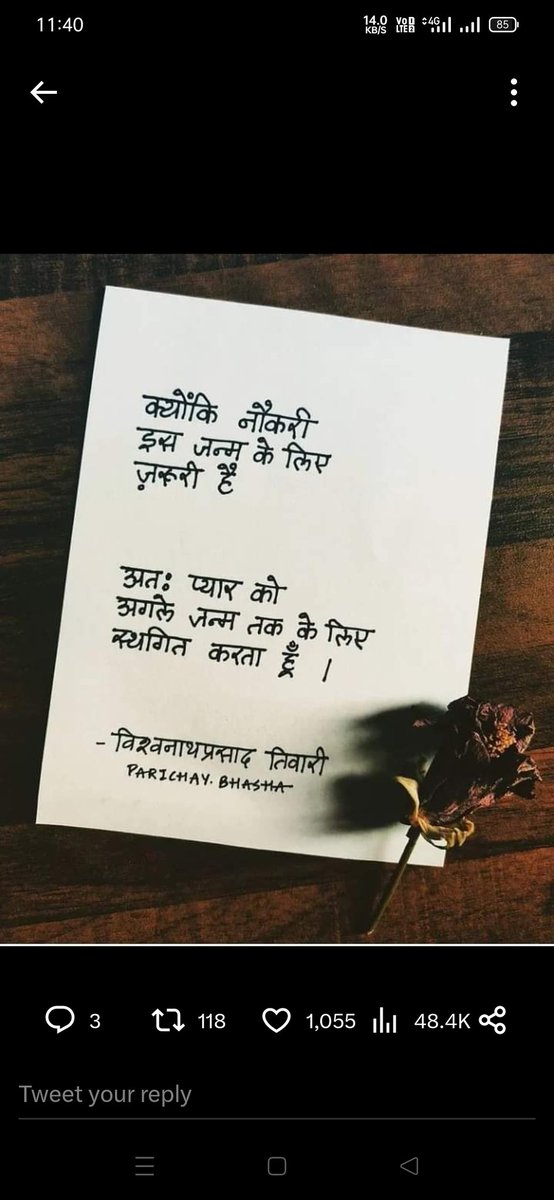 11:40
14.0 KB/S
Vo LTE 2
4G
85
क्योंकि नौकरी
इस जन्म के लिए
ज़रूरी है
अतः प्यार को
अगले जन्म तक के लिए
स्थगित करता हूँ ।
- विश्वनाथप्रसाद तिवारी
PARICHAY. BHASHA
3 118 1,055 48.4K
Tweet your reply